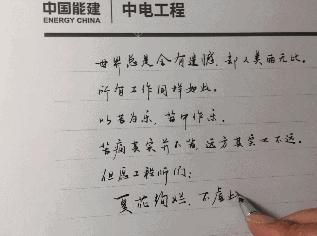 中国能建 中电工程
ENERGY CHINA
世界总是会有遗憾,却又美丽无比。
所有工作同样如此。
以苦为乐,苦中作乐。
苦痛其实并不苦,远方其实也不远。
但愿工程师们:
夏花绚烂,不虚